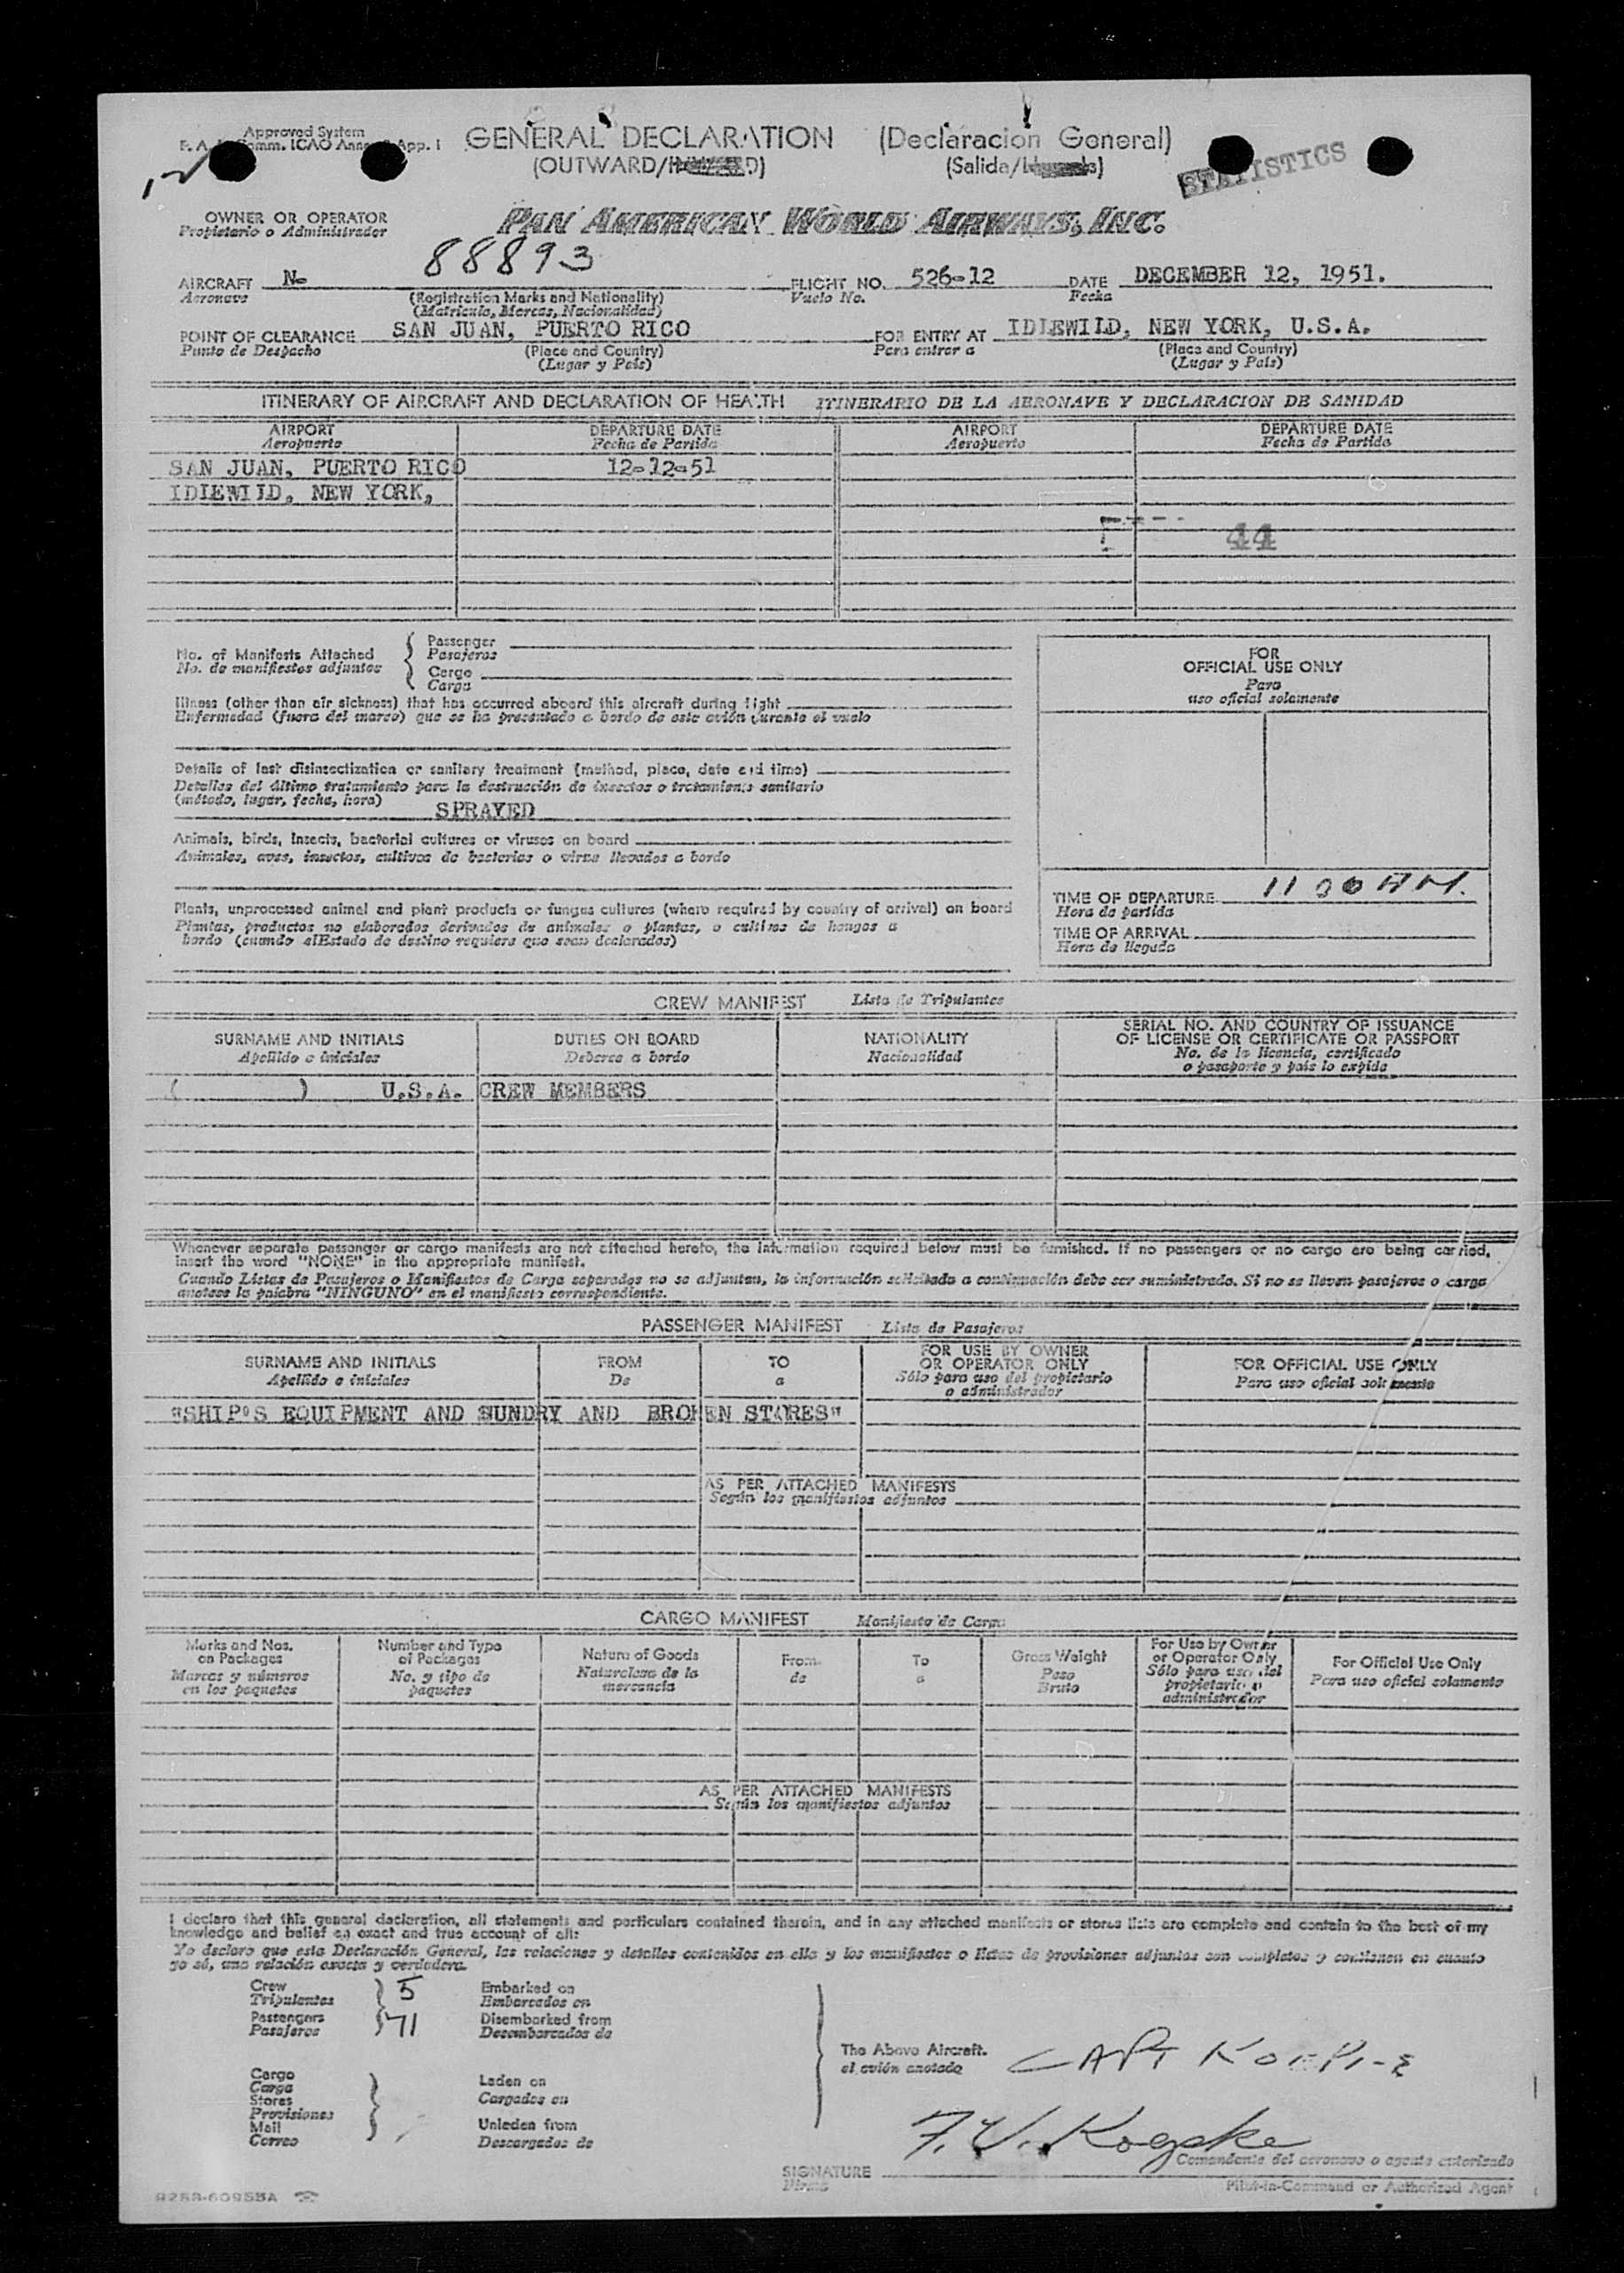 Approved System
GENERAL DECLARATION (Declaracion General)
(OUTWARD/
(Salida/
STATISTICS
OWNER OR OPERATOR
Propietario o Administrador
PAN AMERICAN WORLD AIRWAYS, INC.
AIRCRAFT N- 88893 FLIGHT NO. 526-12 DATE DECEMBER 12, 1951.
Aeronave (Registration Marks and Nationality) Vuelo No. Fecha
(Matricula, Marcas, Nacionalidad)
POINT OF CLEARANCE SAN JUAN, PUERTO RICO FOR ENTRY AT IDLEWILD, NEW YORK, U.S.A.
Punto de Despacho (Place and Country) Para entrar a (Place and Country)
(Lugar y País) (Lugar y País)
ITINERARY OF AIRCRAFT AND DECLARATION OF HEALTH ITINERARIO DE LA AERONAVE Y DECLARACION DE SANIDAD
AIRPORT DEPARTURE DATE AIRPORT DEPARTURE DATE
Aeropuerto Fecha de Partida Aeropuerto Fecha de Partida
SAN JUAN, PUERTO RICO 12-12-51
IDLEWILD, NEW YORK,
44
No. of Manifests Attached
No. de manifiestos adjuntos
Passenger
Pasajeros
Cargo
Carga
Illness (other than air sickness) that has occurred aboard this aircraft during flight
Enfermedad (fuera del mareo) que se ha presentado a bordo de este avión durante el vuelo
Details of last disinsectization or sanitary treatment (method, place, date and time)
Detalles del último tratamiento para la destrucción de insectos o tratamiento sanitario
(método, lugar, fecha, hora)
SPRAYED
Animals, birds, insects, bacterial cultures or viruses on board
Animales, aves, insectos, cultivos de bacterias o virus llevados a bordo
Plants, unprocessed animal and plant products or fungus cultures (where required by country of arrival) on board
Plantas, productos no elaborados derivados de animales o plantas, o cultivos de hongos a
bordo (cuando elEstado de destino requiera que sean declarados)
FOR
OFFICIAL USE ONLY
Para
uso oficial solamente
TIME OF DEPARTURE 11 00 AM.
Hora de partida
TIME OF ARRIVAL
Hora de llegada
CREW MANIFEST Lista de Tripulantes
SURNAME AND INITIALS DUTIES ON BOARD NATIONALITY SERIAL NO. AND COUNTRY OF ISSUANCE
OF LICENSE OR CERTIFICATE OR PASSPORT
Apellido e iniciales Deberes a bordo Nacionalidad No. de la licencia, certificado
o pasaporte y país lo expide
( ) U.S.A. CREW MEMBERS
Whenever separate passenger or cargo manifests are not attached hereto, the information required below must be furnished. If no passengers or no cargo are being carried,
insert the word "NONE" in the appropriate manifest.
Cuando Listas de Pasajeros o Manifiestos de Carga separados no se adjuntan, la información solicitada a continuación debe ser suministrada. Si no se llevan pasajeros o carga
anotese la palabra "NINGUNO" en el manifiesto correspondiente.
PASSENGER MANIFEST Lista de Pasajeros
SURNAME AND INITIALS FROM TO FOR USE BY OWNER
OR OPERATOR ONLY FOR OFFICIAL USE ONLY
Apellido e iniciales De a Sólo para uso del propietario
o administrador Para uso oficial solamente
"SHIP'S EQUIPMENT AND SUNDRY AND BROKEN STORES"
AS PER ATTACHED MANIFESTS
Según los manifiestos adjuntos
CARGO MANIFEST Manifiesto de Carga
Marks and Nos.
on Packages
Marcas y números
en los paquetes
Number and Type
of Packages
No. y tipo de
paquetes
Nature of Goods
Naturaleza de la
mercancía
From
de
To
a
Gross Weight
Peso
Bruto
For Use by Owner
or Operator Only
Sólo para uso del
propietario o
administrador
For Official Use Only
Para uso oficial solamente
AS PER ATTACHED MANIFESTS
Según los manifiestos adjuntos
I declare that this general declaration, all statements and particulars contained therein, and in any attached manifests or stores lists are complete and contain to the best of my
knowledge and belief an exact and true account of all:
Yo declaro que esta Declaración General, las relaciones y detalles contenidos en ella y los manifiestos o listas de provisiones adjuntas son completos y contienen en cuanto
yo sé, una relación exacta y verdadera.
Crew 5 Embarked on
Tripulantes Embarcados en
Passengers 71 Disembarked from
Pasajeros Desembarcados de
The Above Aircraft.
el avión anotado
CAPT KOEPKE
Cargo
Carga
Stores
Provisiones
Mail
Correo
Laden on
Cargados en
Unladen from
Descargados de
F.V. Koepke
Comandante del aeronave o agente autorizado
SIGNATURE
Firma
Pilot-in-Command or Authorized Agent